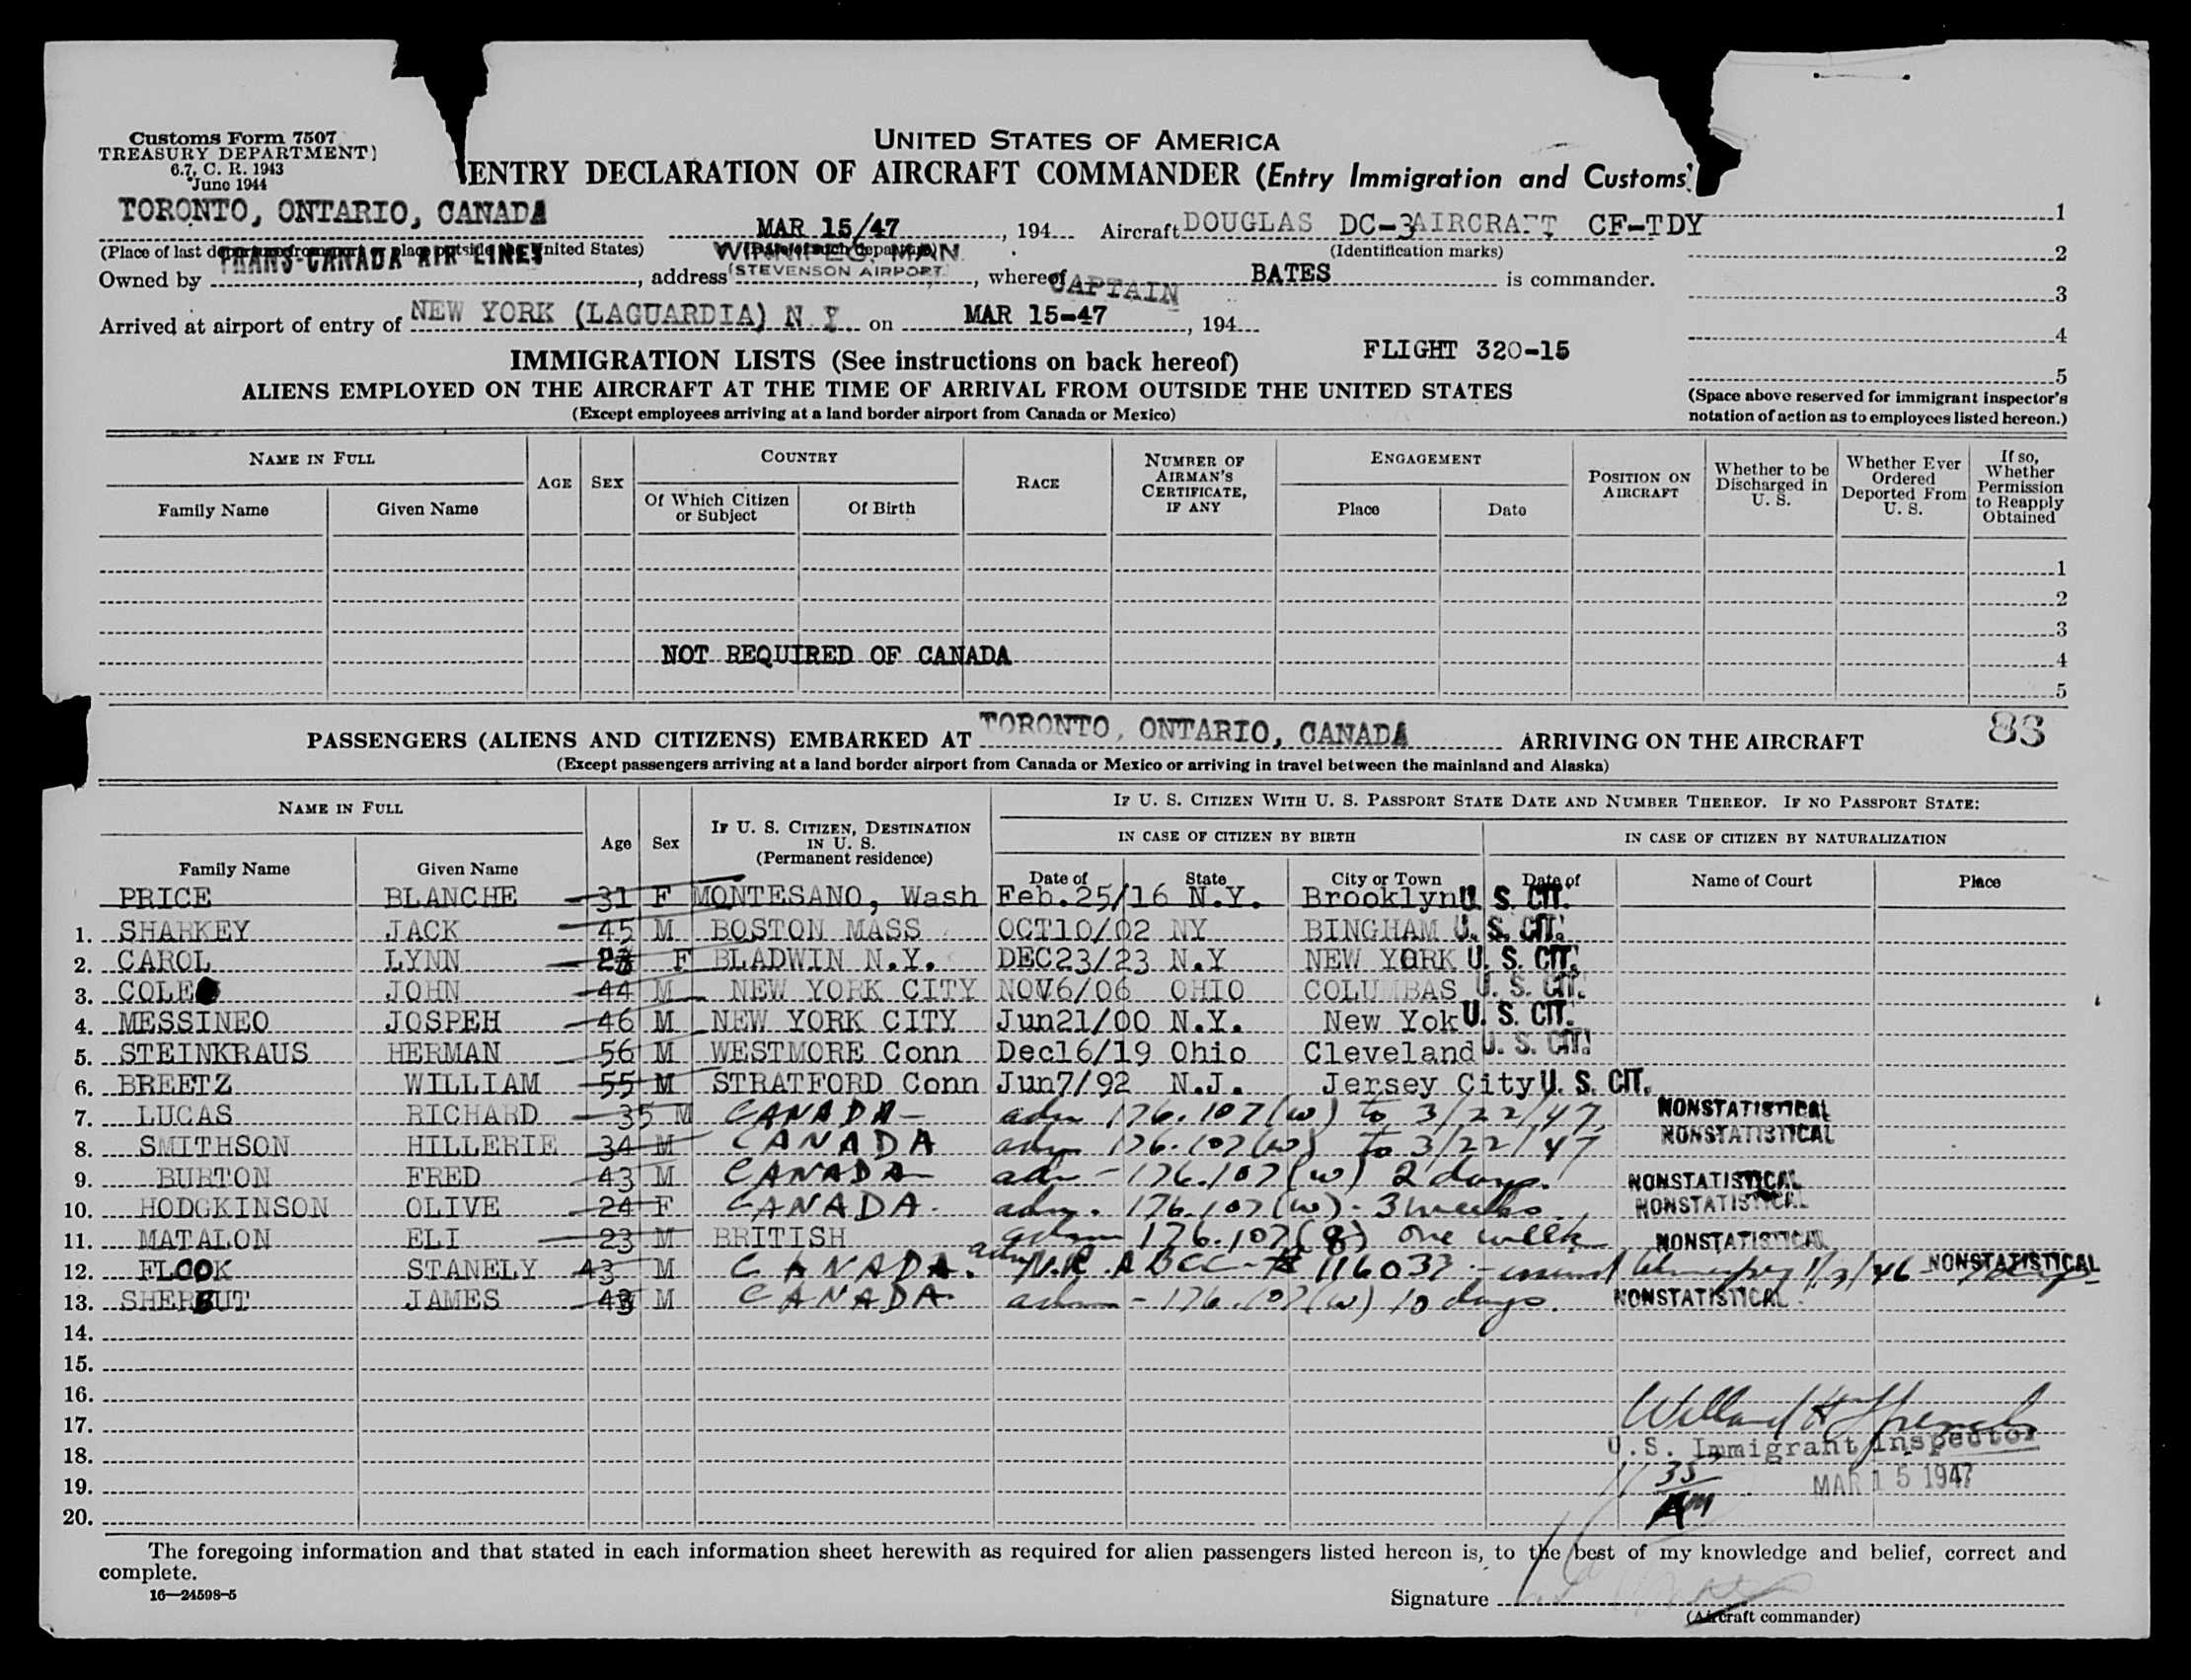 Customs Form 7507
TREASURY DEPARTMENT)
6.7, C. R. 1943
June 1944
UNITED STATES OF AMERICA
ENTRY DECLARATION OF AIRCRAFT COMMANDER (Entry Immigration and Customs)
TORONTO, ONTARIO, CANADA MAR 15/47, 194 Aircraft DOUGLAS DC-3 AIRCRAFT CF-TDY 1
(Place of last departure from port or place outside the United States) (Date of such departure) (Identification marks) 2
TRANS-CANADA AIR LINES WINNIPEG, MAN.
Owned by , address (STEVENSON AIRPORT) , whereof CAPTAIN BATES is commander. 3
Arrived at airport of entry of NEW YORK (LAGUARDIA) N.Y. on MAR 15-47, 194 4
IMMIGRATION LISTS (See instructions on back hereof) FLIGHT 320-15 5
ALIENS EMPLOYED ON THE AIRCRAFT AT THE TIME OF ARRIVAL FROM OUTSIDE THE UNITED STATES
(Except employees arriving at a land border airport from Canada or Mexico)
(Space above reserved for immigrant inspector's
notation of action as to employees listed hereon.)
NAME IN FULL
Family Name Given Name
AGE
SEX
COUNTRY
Of Which Citizen or Subject
Of Birth
RACE
NUMBER OF AIRMAN'S CERTIFICATE, IF ANY
ENGAGEMENT
Place Date
POSITION ON AIRCRAFT
Whether to be Discharged in U. S.
Whether Ever Ordered Deported From U. S.
If so, Whether Permission to Reapply Obtained
1
2
3
NOT REQUIRED OF CANADA 4
5
PASSENGERS (ALIENS AND CITIZENS) EMBARKED AT TORONTO, ONTARIO, CANADA ARRIVING ON THE AIRCRAFT 83
(Except passengers arriving at a land border airport from Canada or Mexico or arriving in travel between the mainland and Alaska)
NAME IN FULL
Family Name Given Name
Age
Sex
IF U. S. CITIZEN, DESTINATION IN U. S.
(Permanent residence)
IF U. S. CITIZEN WITH U. S. PASSPORT STATE DATE AND NUMBER THEREOF. IF NO PASSPORT STATE:
IN CASE OF CITIZEN BY BIRTH IN CASE OF CITIZEN BY NATURALIZATION
Date of State City or Town Date of Name of Court Place
PRICE BLANCHE 31 F MONTESANO, Wash Feb.25/16 N.Y. Brooklyn U. S. CIT.
1. SHARKEY JACK 45 M BOSTON MASS OCT10/02 NY BINGHAM U. S. CIT.
2. CAROL LYNN 23 F BLADWIN N.Y. DEC23/23 N.Y NEW YORK U. S. CIT.
3. COLE JOHN 44 M NEW YORK CITY NOV6/06 OHIO COLUMBAS U. S. CIT.
4. MESSINEO JOSPEH 46 M NEW YORK CITY Jun21/00 N.Y. New Yok U. S. CIT.
5. STEINKRAUS HERMAN 56 M WESTMORE Conn Dec16/19 Ohio Cleveland U. S. CIT.
6. BREETZ WILLIAM 55 M STRATFORD Conn Jun7/92 N.J. Jersey City U. S. CIT.
7. LUCAS RICHARD 35 M CANADA adm 176.107(w) to 3/22/47. NONSTATISTICAL
8. SMITHSON HILLERIE 34 M CANADA adm 176.107(w) to 3/22/47 NONSTATISTICAL
9. BURTON FRED 43 M CANADA adm - 176.107(w) 2 days. NONSTATISTICAL
10. HODGKINSON OLIVE 24 F CANADA. adm. 176.107(w) - 3 weeks. NONSTATISTICAL
11. MATALON ELI 23 M BRITISH adm 176.107(8) one week NONSTATISTICAL
12. FLOOK STANELY 43 M CANADA. adm N.R. ABCC-# 116033 - issued 1/3/46 NONSTATISTICAL
13. SHERBUT JAMES 43 M CANADA. adm - 176.107(w) 10 days. NONSTATISTICAL
14.
15.
16.
17.
18. U.S. Immigrant Inspector
19. 11 35 MAR 15 1947
20. AM
The foregoing information and that stated in each information sheet herewith as required for alien passengers listed hereon is, to the best of my knowledge and belief, correct and
complete.
16—24598-5
Signature
(Aircraft commander)